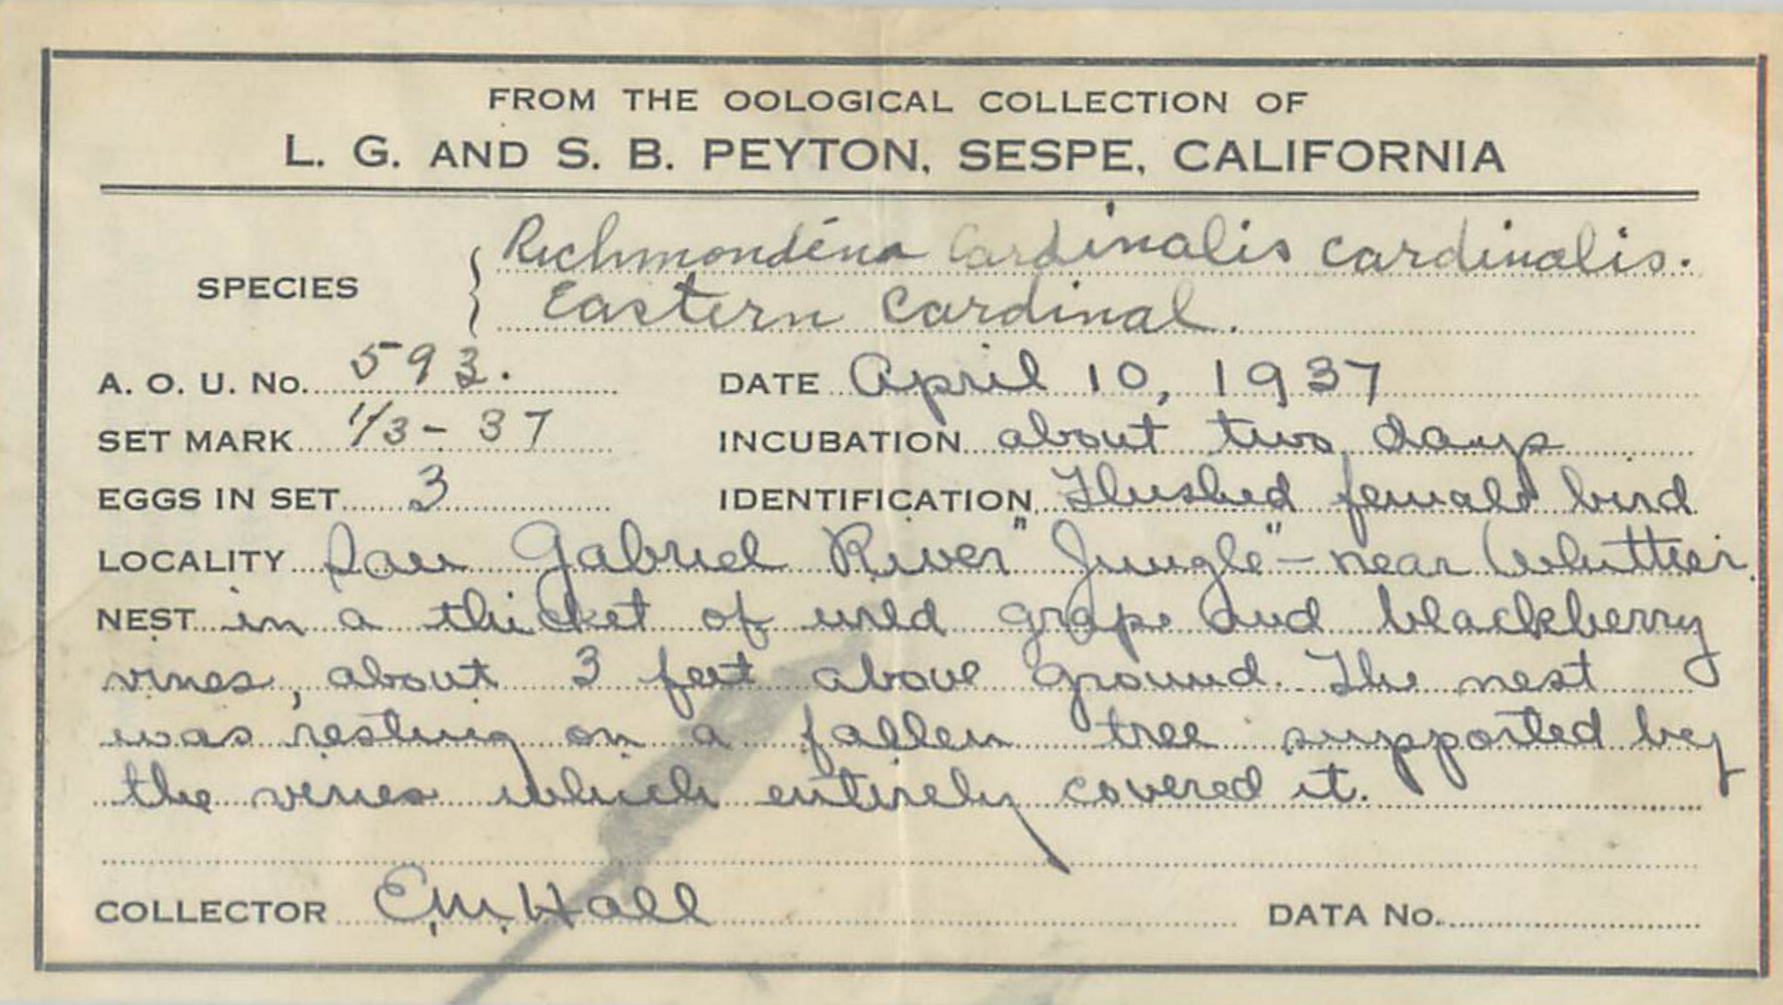 FROM THE OOLOGICAL COLLECTION OF
L. G. AND S. B. PEYTON, SESPE, CALIFORNIA
SPECIES { Richmondéna Cardinalis cardinalis.
Eastern Cardinal.
A. O. U. No. 593. DATE April 10, 1937
SET MARK 1/3 - 37 INCUBATION about two days
EGGS IN SET 3 IDENTIFICATION Flushed female bird
LOCALITY San Gabriel River "Jungle" - near Whittier.
NEST in a thicket of wild grape and blackberry
vines, about 3 feet above ground. The nest
was resting on a fallen tree supported by
the vines which entirely covered it.
COLLECTOR E.M. Hall DATA No.